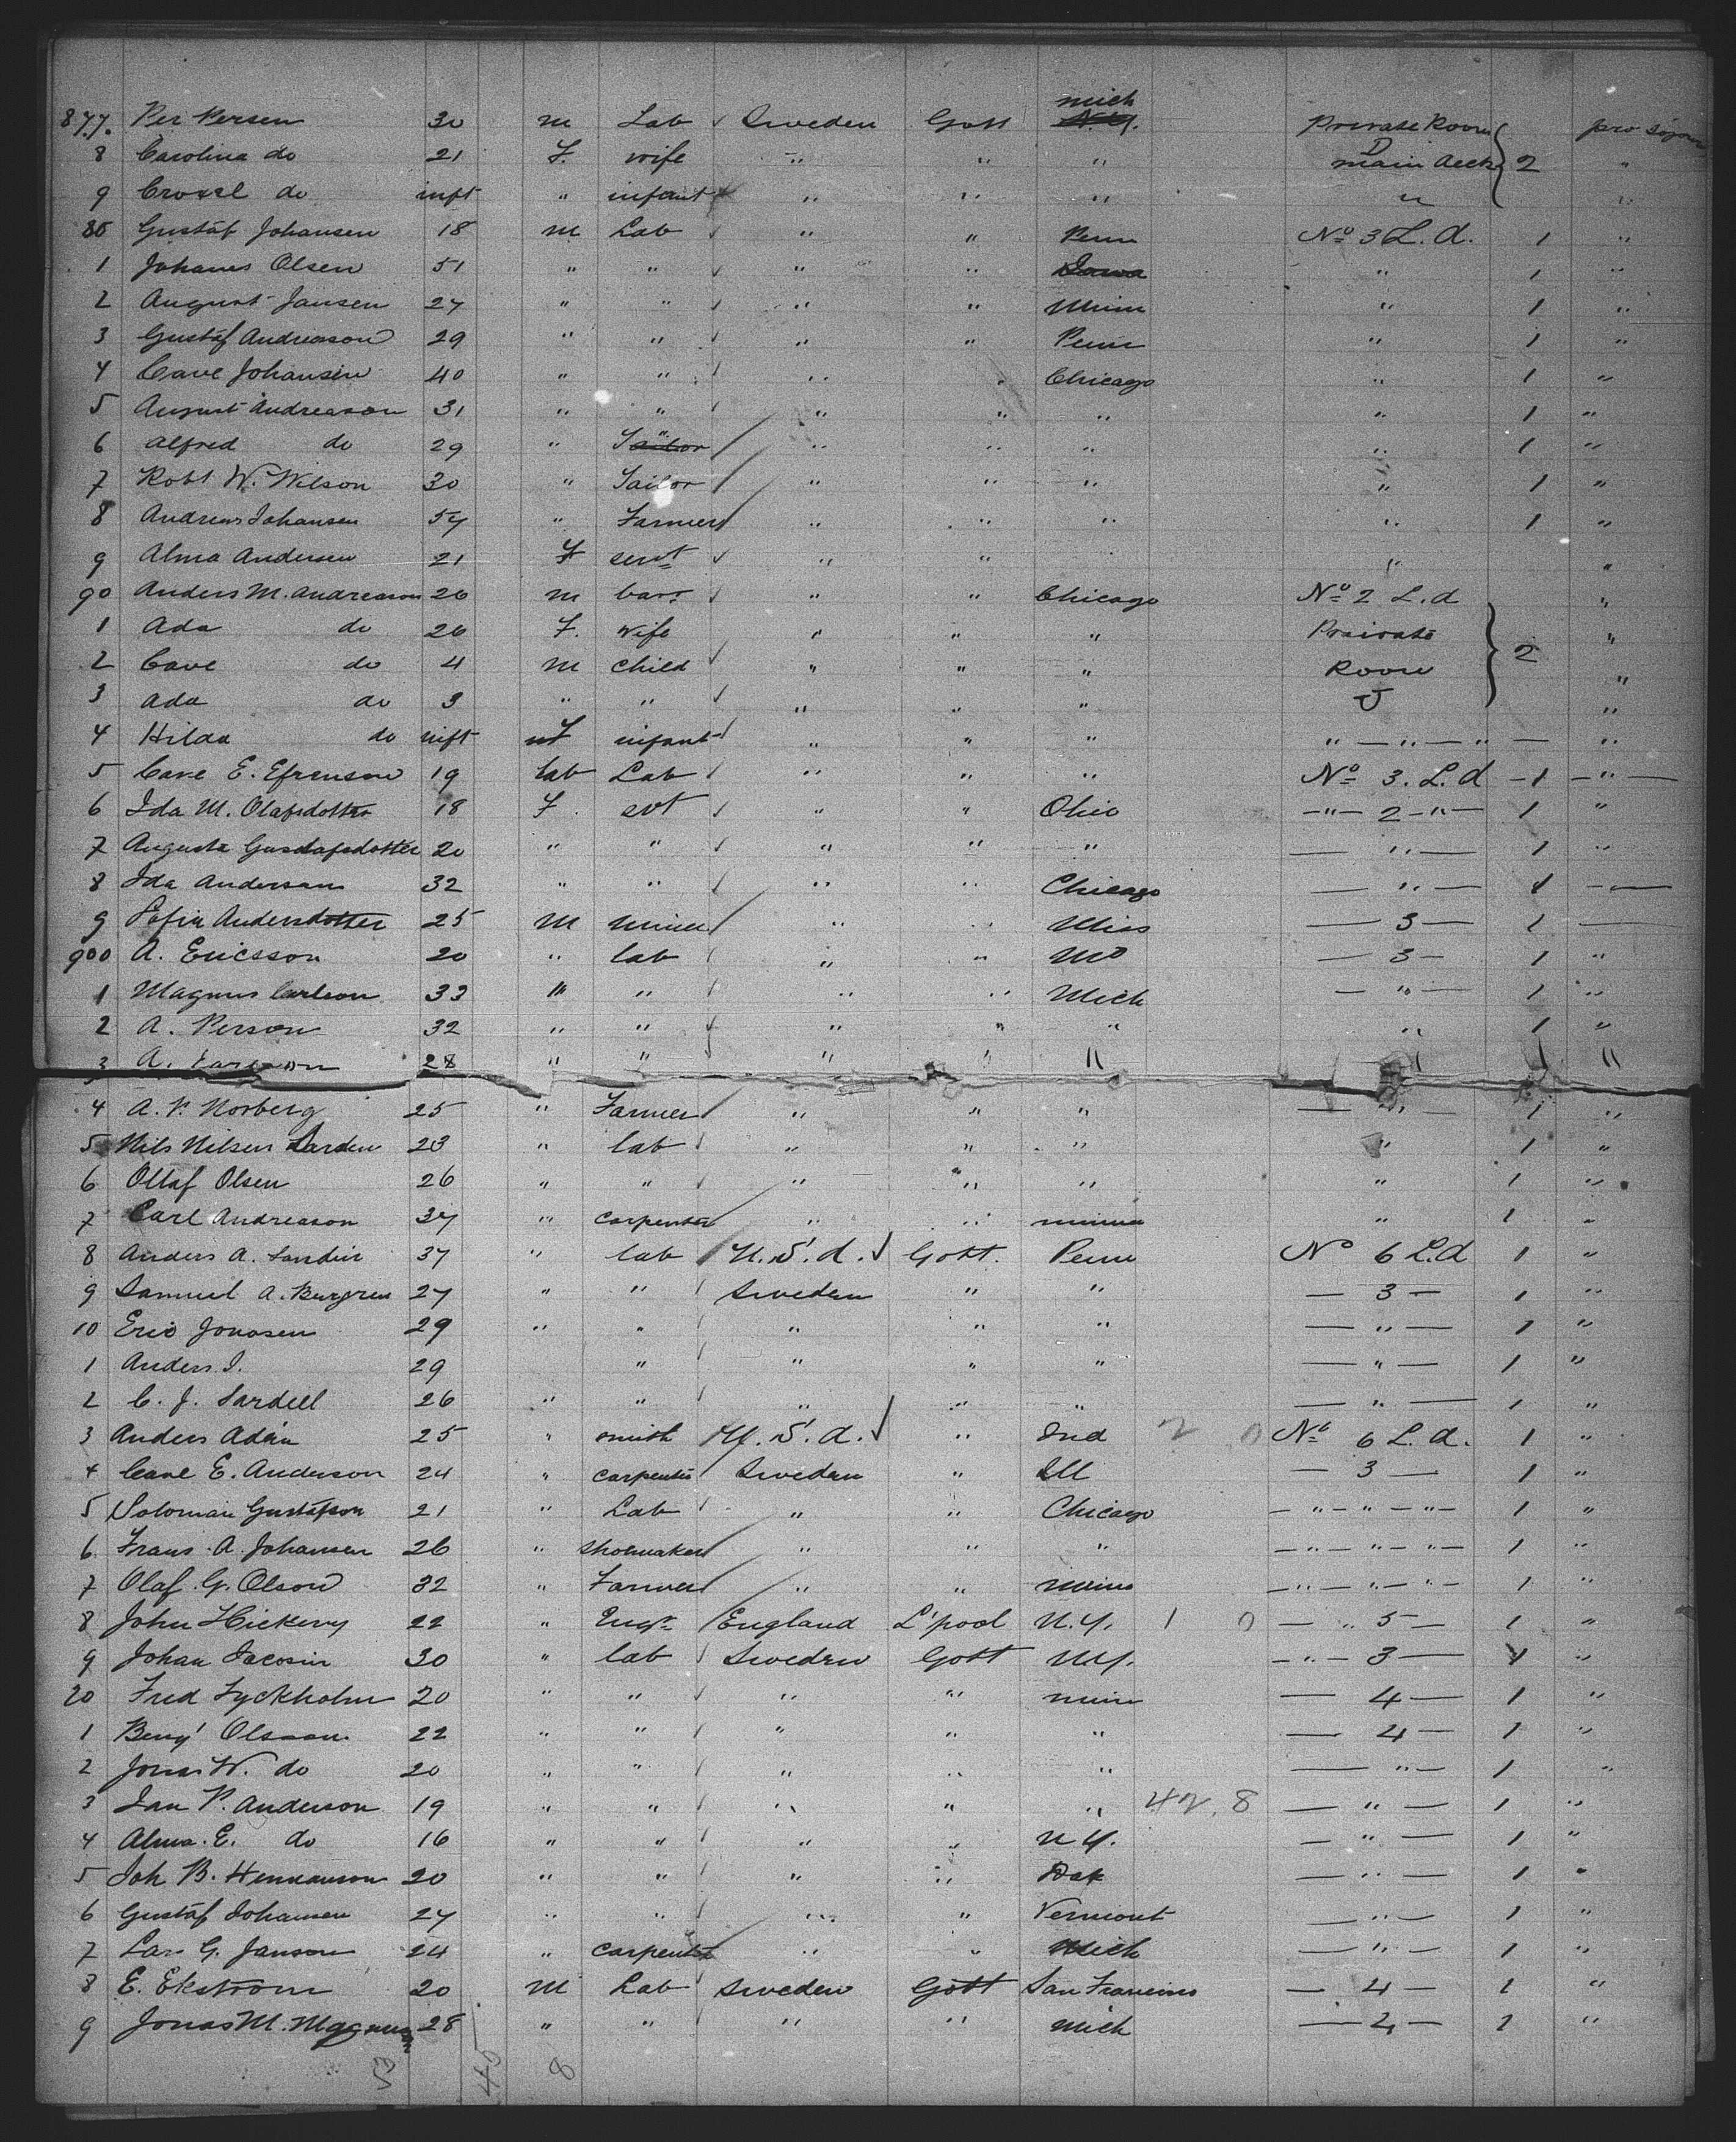 877. Per Persen 30 m Lab Sweden Gott mich N.Y. Private Room pro sojourn
8 Carolina do 21 F. wife " " " D main deck 2 "
9 do inft " infant " " " " "
80 Gustaf Johansen 18 m Lab " " Penn No 3 L. d. 1 "
1 Johanes Olsen 51 " " " " Iowa " 1 "
2 August Jansen 27 " " " " Minn " 1 "
3 Gustaf Andreason 29 " " " " Penn " 1 "
4 Carl Johansen 40 " " " " Chicago " 1 "
5 August Andreason 31 " " " " " " 1 "
6 Alfred do 29 " Sailor " " " " 1 "
7 Robt W. Wilson 30 " Sailor " " " " 1 "
8 Andreas Johansen 57 " Farmer " " " " 1 "
9 Alma Andersen 21 F servt " " " "
90 Anders M. Andreason 26 m " " Chicago No 2 L. d "
1 Ada do 26 F. wife " " " Private "
2 Carl do 4 m child " " " Room 2 "
3 Ada do 3 " " " " " J "
4 Hilda do inft F infant " " " " — " — " — "
5 Carl E. Efrenson 19 lab Lab " " " No 3. L. d — 1 — " —
6 Ida M. Olafsdotter 18 F. svt " " Ohio — " — 2 — " — 1 "
7 Augusta Gustafsdotter 20 " " " " " — " — 1 "
8 Ida Anderson 32 " " " " Chicago — " — 1 —
9 Sofia Andersdotter 25 M miner " " Miss — 3 — 1 —
900 A. Ericsson 20 " lab " " Mo — 3 — 1 "
1 Magnus Carlson 33 " " " " Mich — " — 1 "
2 A. Person 32 " " " " " " 1 "
3 A. Larsson 28 " " " " " "
4 A. P. Norberg 25 " Farmer " " " — " — 1 "
5 Nils Nilsen Larsden 23 " lab " " " " 1 "
6 Ollaf Olsen 26 " " " " " " 1 "
7 Carl Andreason 37 " carpenter " " minna " 1 "
8 Anders A. Sandin 37 " lab U.S.A. Gott. Penn No 6 L.d 1 "
9 Samuel A. Burgren 27 " " Sweden " " — 3 — 1 "
10 Eric Jonasen 29 " " " " " — " — 1 "
1 Anders J. 29 " " " " — " — 1 "
2 C. J. Sardell 26 " " " " " — " — 1 "
3 Anders Adán 25 " smith U.S.A. " Ind 2 0 No 6 L. d. 1 "
4 Carl E. Anderson 24 " carpenter Sweden " Ill — 3 — 1 "
5 Soloman Gustafson 21 " Lab " " Chicago — " — " — " — 1 "
6 Frans A. Johansen 26 " shoemaker " " " — " — " — " — 1 "
7 Olaf. G. Olson 32 " Farmer " " minn — " — " — " — 1 "
8 John Hickery 22 " Engr England L'pool N.Y. 1 0 — " 5 — 1 "
9 Johan Jacosin 30 " lab Sweden Gott NY. — " — 3 — 1 "
20 Fred Lyckholm 20 " " " " minn — 4 — 1 "
1 Benj Olsson. 22 " " " " " — 4 — 1 "
2 Jonas W. do 20 " " " " " — " — 1 "
3 Jan P. Anderson 19 " " " " " 42, 8 — " — 1 "
4 Alma. E. do 16 " " " " N Y. — " — 1 "
5 Joh B. Hermanson 20 " " " " Dak — " — 1 "
6 Gustaf Johansen 27 " " " " Vermont — " — 1 "
7 Lars G. Janson 24 " carpenter " " Mich — " — 1 "
8 E. Ekström 20 M Lab Sweden Gott San Francisco — 4 — 1 "
9 Jonas M. Magnus 28 " " " " mich — 2 — 1 "
53 45 8